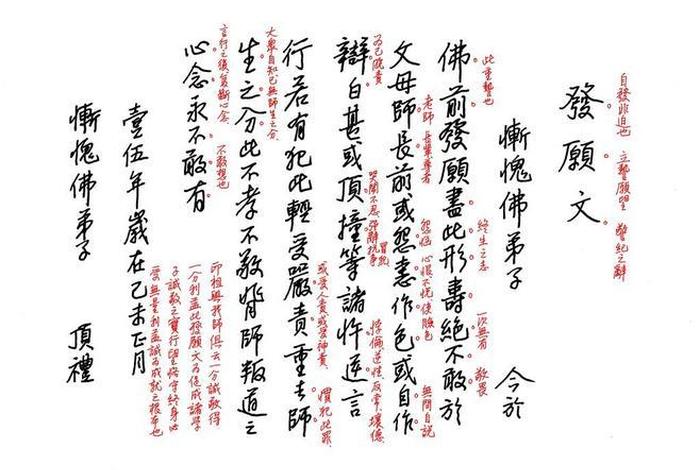 自發非迫也 立誓願望 警紀之辭
發願文
慚愧佛弟子 今於
此重誓也 終生之志 一次無有 敢畏
佛前發願盡此形壽絕不敢於
老師 長輩尊者 怨惱 心恨不悅使臉色 無間自說
父母師長前或怨恚作色或自作
為己脫責 哭鬧不忍 強辭抗爭 冒犯 悖倫逆理反常壞德
辯白甚或頂撞等諸忤逆言
或受人責或受神責 慣犯此罪
行若有犯此輕受嚴責重去師
大眾自知已無師生之分
生之分此不孝不敬背師叛道之
言行之後更斷心念 不敢想也
心念永不敢有
印祖與我師俱云一分誠敬得
一分利益此發願文為促成諸學
子誠敬之實行望恪守終身必
受無量利益誠為成就之根本也
壹伍年歲在乙未正月
慚愧佛弟子 頂禮